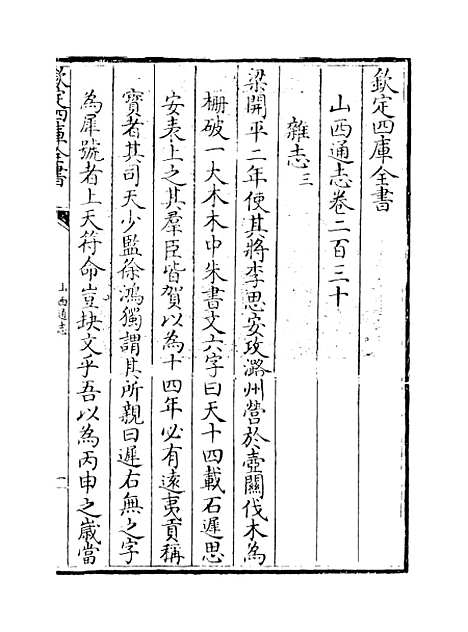 欽定四庫全書
山西通志卷二百三十
雜志三
梁開平二年使其將李思安攻潞州營於壺關伐木為
柵破一大木木中朱書文六字曰天十四載石遲思
安表上之其羣臣皆賀以為十四年必有遠夷貢稱
寶者其司天少監徐鴻獨謂其所親曰遲右無之字
為犀號者上天符命豈抉文乎吾以為丙申之嵗當
欽定四庫全書
山西通志
一